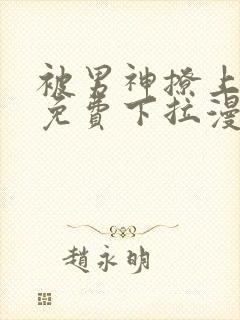 被男神撩上
免費下拉漫
趙永明